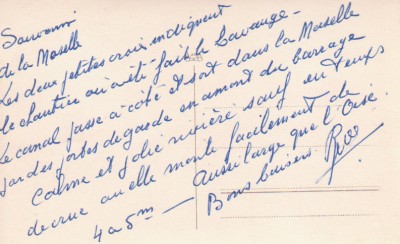 Souvenir
de la Moselle
Les deux petites croix indiquent
le chantier où a été fait le
Le canal passe à côté et sort dans la Moselle
par des portes de garde en amont du barrage
Calme et jolie rivière sauf en temps
de crue où elle monte facilement de
4 à 5m — Aussi large que l'Oise.
Bons baisers.